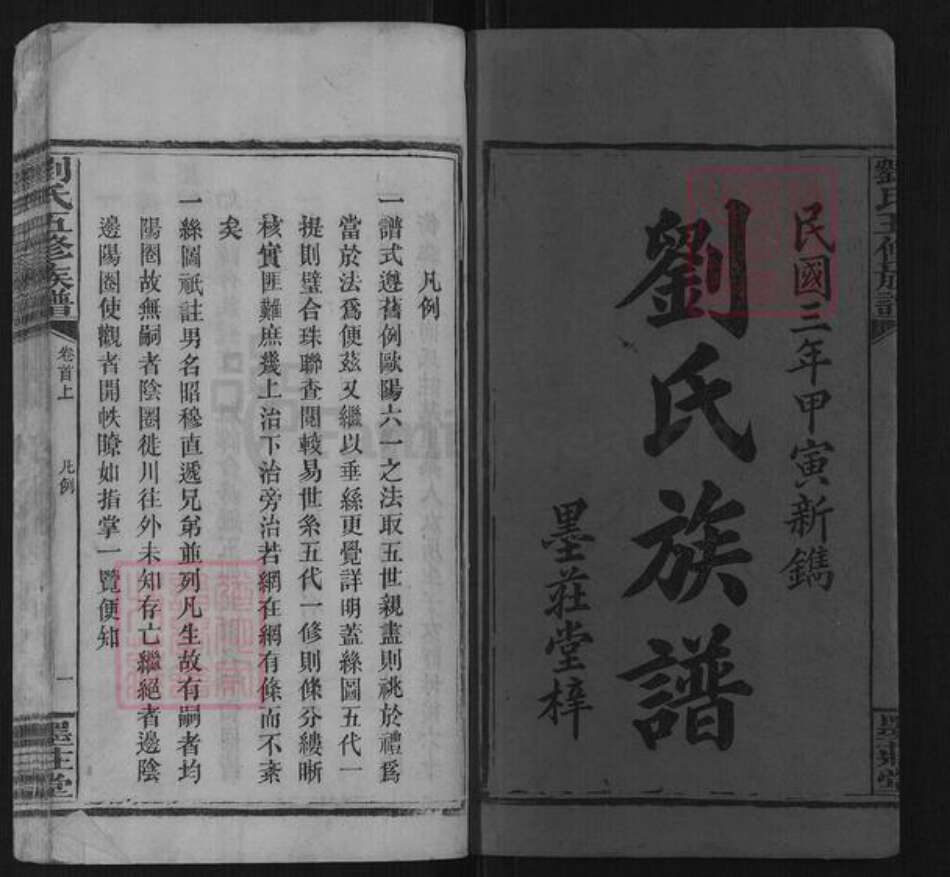 民國三年甲寅新鐫
劉氏族譜
墨莊堂梓
劉氏五修族譜
墨莊堂
凡例
一譜式遵舊例歐陽六一之法取五世親盡則祧於禮爲
當於法爲便茲又繼以垂絲更覺詳明蓋絲圖五代一
提則璧合珠聯查閱較易世系五代一修則條分縷晰
核實匪難庶幾上治下治旁治若網在綱有條而不紊
矣
一絲圖祇註男名昭穆直遞兄弟並列凡生故有嗣者均
陽圈故無嗣者陰圈徙川往外未知存亡繼絕者邊陰
邊陽圈使觀者開帙瞭如指掌一覽便知
劉氏五修族譜
卷首上
凡例
一
墨莊堂